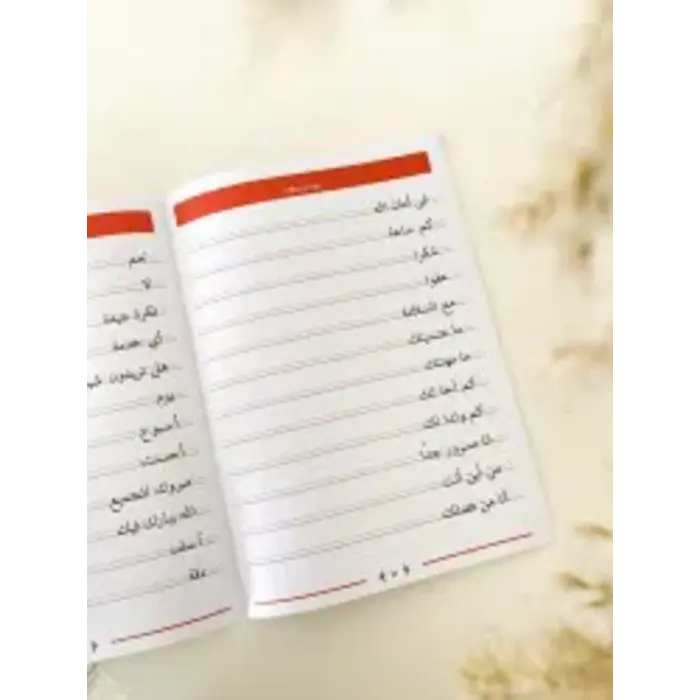 في أمان الله
كم ساعة
شكرا
عفوا
مع السلامة
ما جنسيتك
ما مهنتك
كم أخا لك
كم ولدا لك
أنا مسرور جداً
من أين أنت
أنا من فضلك
نعم
لا
فكرة جيدة
أي خدمة
هل تريدون
يوم
أسبوع
أحسنت
مبروك للجميع
الله يبارك فيك
آسف